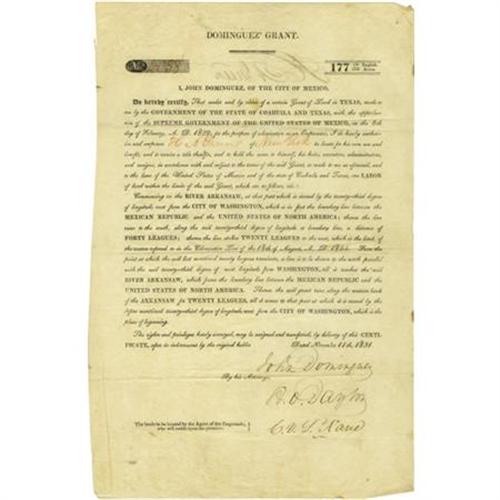 DOMINGUEZ' GRANT.
No.
177 Of English Acres
I, JOHN DOMINGUEZ, OF THE CITY OF MEXICO,
Do hereby certify, That under and by virtue of a certain Grant of Land in TEXAS, made
me by the GOVERNMENT OF THE STATE OF COAHUILA AND TEXAS, with the approbation
of the SUPREME GOVERNMENT OF THE UNITED STATES OF MEXICO, on the
of February, A. D. 1829, for the purpose of colonization as an Empresario, I do hereby authorize
and empower of New York to locate for his own use and
benefit, and to receive a title therefor, and to hold the same to himself, his heirs, executors, administrators,
and assigns, in accordance with and subject to the terms of the Grant, as made to me as aforesaid, and
to the laws of the United States of Mexico and of the state of Coahuila and Texas, one LABOR
of land within the limits of the said Grant, which are as follows, viz.:
Commencing on the RIVER ARKANSAW, at that point which is crossed by the twenty-third degree of
longitude west from the CITY OF WASHINGTON, which is in fact the boundary line between the
MEXICAN REPUBLIC and the UNITED STATES OF NORTH AMERICA; thence the line
runs to the south, along the said twenty-third degree of longitude as boundary line, a distance of
FORTY LEAGUES; thence the line strikes TWENTY LEAGUES to the west, which is the limit, of
the reserve referred to in the Colonization Law of the 18th of August, A. D. 1824. From the
point at which the said last mentioned twenty leagues terminate, a line is to be drawn to the north parallel
with the said twenty-third degree of west longitude from WASHINGTON, till it reaches the said
RIVER ARKANSAW, which forms the boundary line between the MEXICAN REPUBLIC and the
UNITED STATES OF NORTH AMERICA. Thence the said grant runs along the western bank
of the ARKANSAW for TWENTY LEAGUES, till it comes to that point at which it is crossed by the
before mentioned twenty-third degree of longitude west from the CITY OF WASHINGTON, which is the
place of beginning.
The rights and privileges hereby conveyed, may be assigned and transferred, by delivery of this CERTIFICATE,
after its endorsement by the original holder. Dated November 11th, 1831.
John Dominguez
By his Attorneys,
A. O. Dayton
C. V. S. Kane
The lands to be located by the Agent of the Empresario,
who will survey upon the premises.